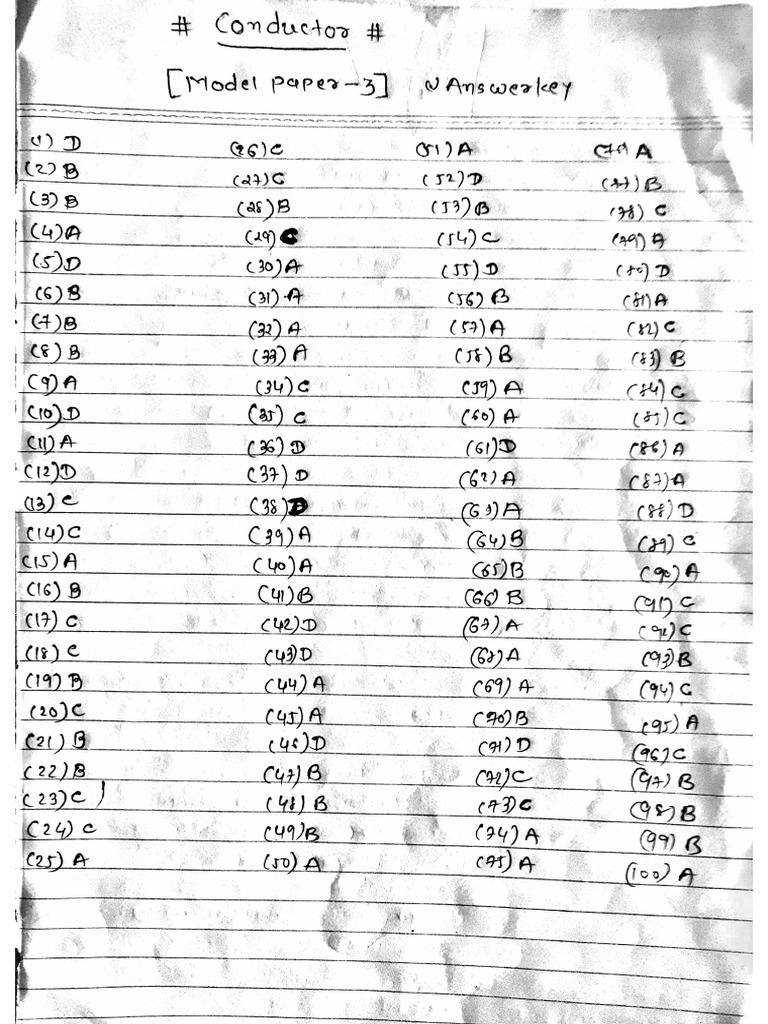 # Conductor #
[Model paper-3] Answerkey
(1) D (26) C (51) A (76) A
(2) B (27) C (52) D (77) B
(3) B (28) B (53) B (78) C
(4) A (29) C (54) C (79) A
(5) D (30) A (55) D (80) D
(6) B (31) A (56) B (81) A
(7) B (32) A (57) A (82) C
(8) B (33) A (58) B (83) B
(9) A (34) C (59) A (84) C
(10) D (35) C (60) A (85) C
(11) A (36) D (61) D (86) A
(12) D (37) D (62) A (87) A
(13) C (38) D (63) A (88) D
(14) C (39) A (64) B (89) C
(15) A (40) A (65) B (90) A
(16) B (41) B (66) B (91) C
(17) C (42) D (67) A (92) C
(18) C (43) D (67) A (93) B
(19) B (44) A (69) A (94) C
(20) C (45) A (70) B (95) A
(21) B (46) D (71) D (96) C
(22) B (47) B (72) C (97) B
(23) C (48) B (73) C (98) B
(24) C (49) B (74) A (99) B
(25) A (50) A (75) A (100) A